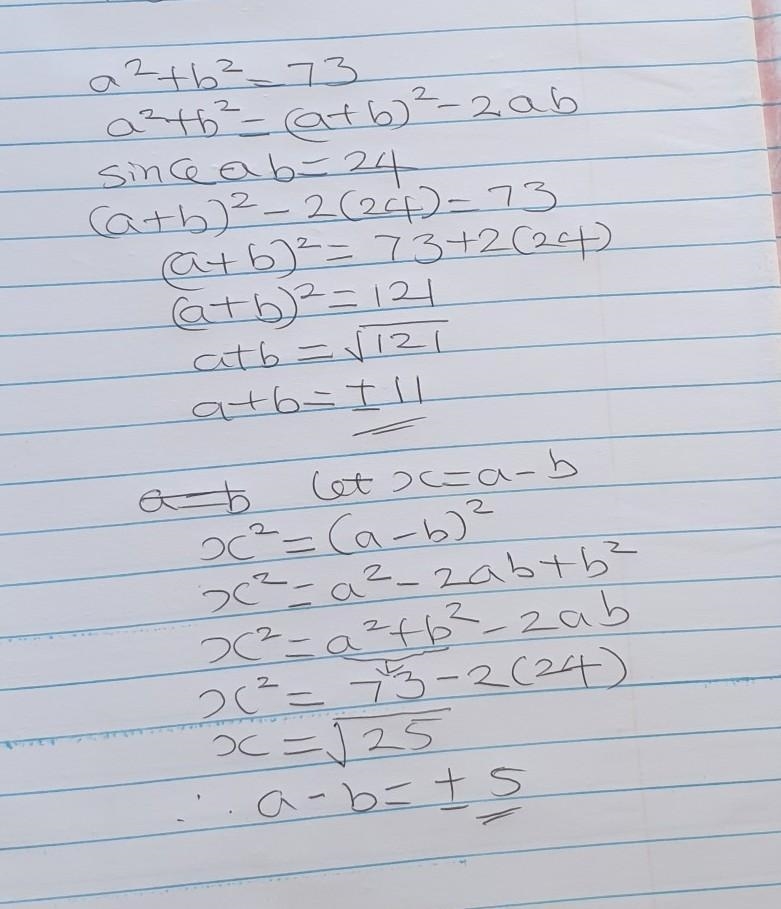 a²+b²=73
a²+b²=(a+b)²-2ab
since ab=24
(a+b)²-2(24)=73
(a+b)²=73+2(24)
(a+b)²=121
a+b=√121
a+b=±11
a-b let x=a-b
x²=(a-b)²
x²=a²-2ab+b²
x²=a²+b²-2ab
x²=73-2(24)
x=√25
∴ a-b=±5